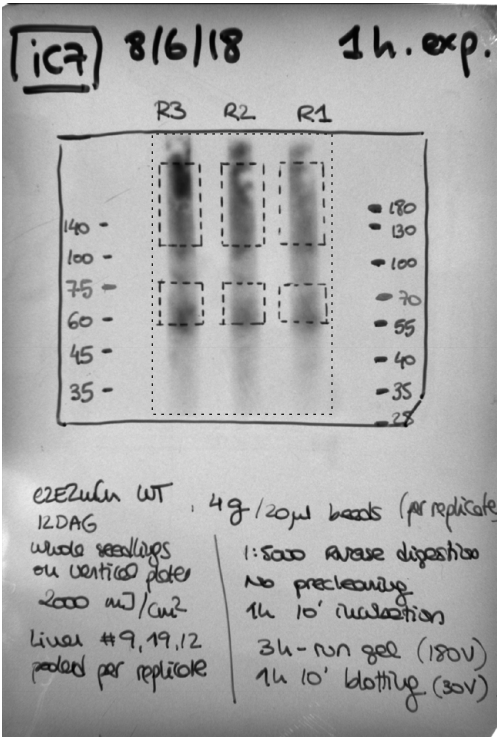 iC7 8/6/18 1h. exp.
R3 R2 R1
140
100
75
60
45
35
180
130
100
70
55
40
35
28
WT
12DAG
whole seedlings
on vertical plates
2000 mJ/cm²
Lines #9, 19, 12
pooled per replicate
4g/20µl beads (per replicate
1:5000 RNase digestion
No precleaning
1h 10' incubation
3h-run gel (180V)
1h 10' blotting (30V)